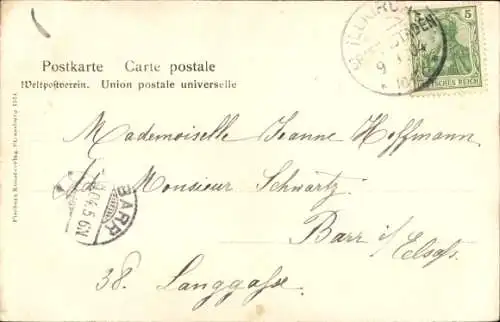 Postkarte Carte postale
Weltpostverein. Union postale universelle
5
DEUTSCHES REICH
Mademoiselle Jeanne Hoffmann
Monsieur Schwartz
Barr i/ Elsass.
38. Langgasse.
BARR